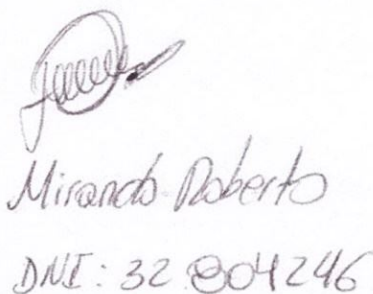 Miranda Roberto
DNI: 32.804246